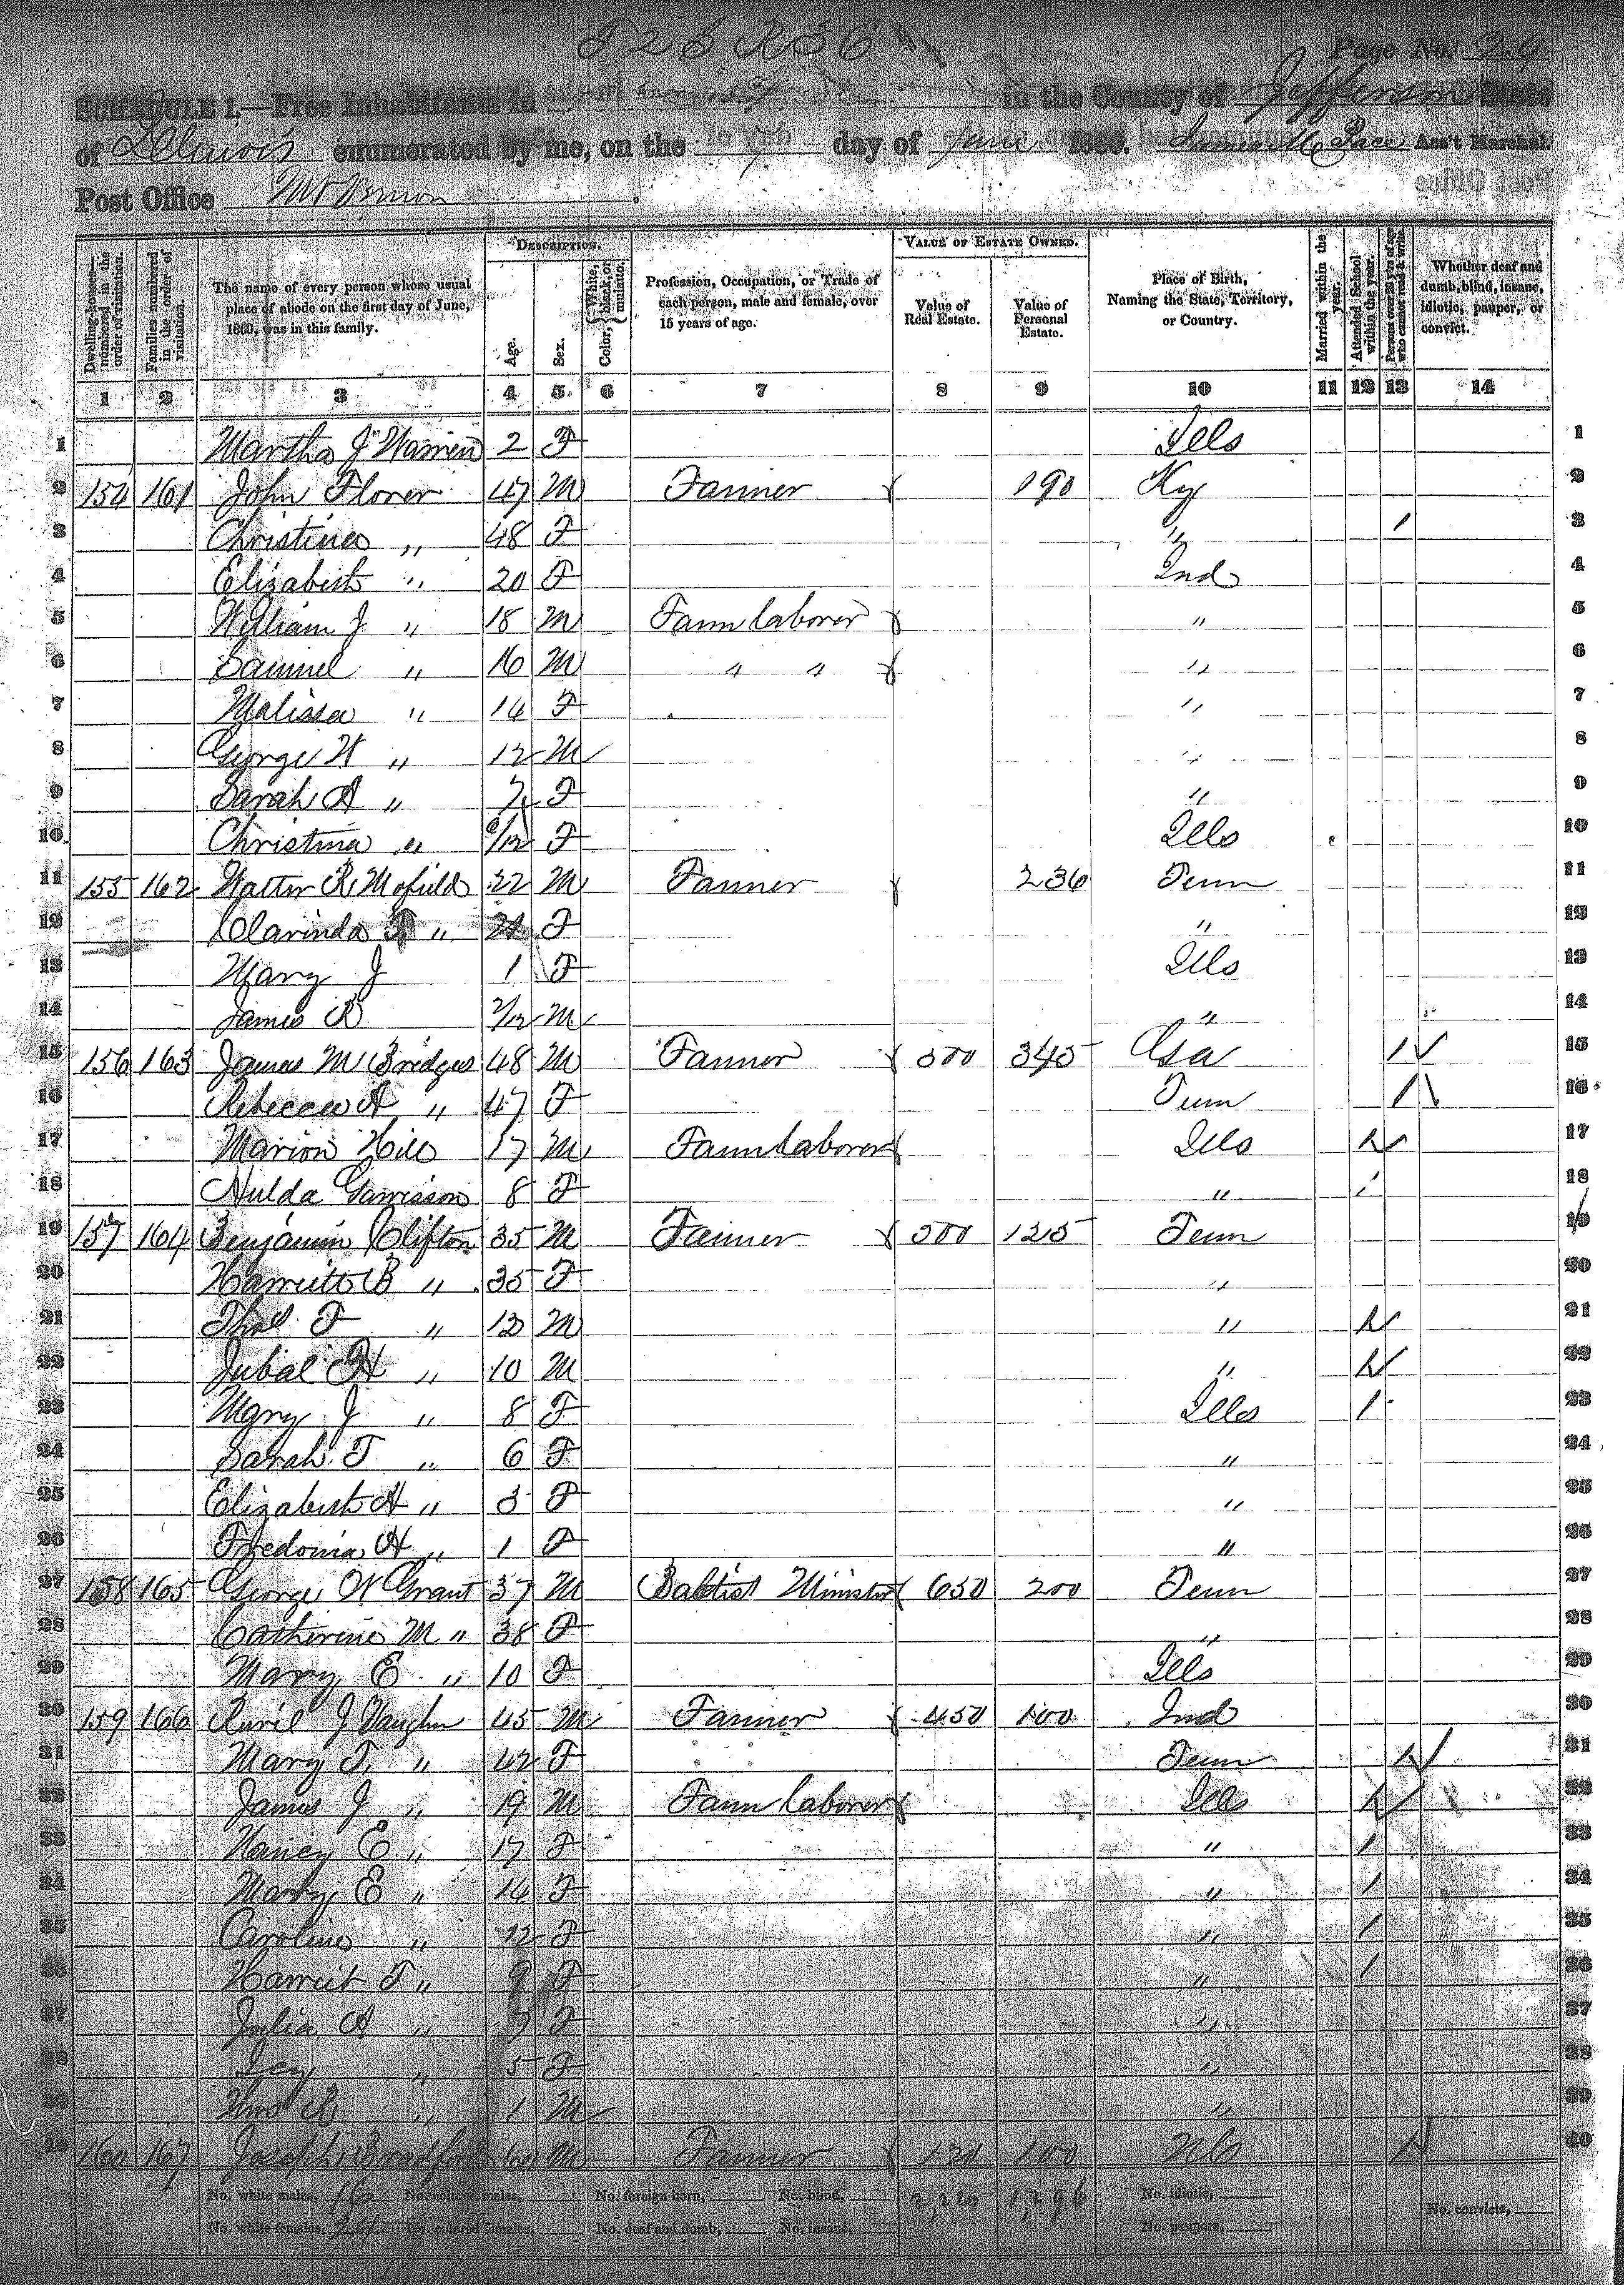 Page No. 29
SCHEDULE 1.—Free Inhabitants in in the County of Jefferson State
of Illinois enumerated by me, on the day of June 1860. Pace Ass't Marshal.
Post Office Mt Vernon
Dwelling-houses—numbered in the order of visitation.
Families numbered in the order of visitation.
The name of every person whose usual place of abode on the first day of June, 1860, was in this family.
DESCRIPTION.
Age.
Sex.
Color, White, black, or mulatto.
Profession, Occupation, or Trade of each person, male and female, over 15 years of age.
VALUE OF ESTATE OWNED.
Value of Real Estate.
Value of Personal Estate.
Place of Birth, Naming the State, Territory, or Country.
Married within the year.
Attended School within the year.
Persons over 20 y'rs of age who cannot read & write.
Whether deaf and dumb, blind, insane, idiotic, pauper, or convict.
1 2 3 4 5 6 7 8 9 10 11 12 13 14
1 Martha J Warren 2 F Ills 1
2 154 161 John Florer 47 M Farmer 190 Ky 2
3 Christina " 48 F " / 3
4 Elizabeth " 20 F Ind 4
5 William J " 18 M Farm laborer " 5
6 Samuel " 16 M " " " 6
7 Malissa " 14 F " 7
8 George W " 12 M " 8
9 Sarah A " 7 F " 9
10 Christina " /12 F Ills 10
11 155 162 Walter R Mofield 22 M Farmer 236 Tenn 11
12 Clarinda " F " 12
13 Mary J 1 F Ills 13
14 James R /12 M " 14
15 156 163 James M Bridges 48 M Farmer 500 345 / 15
16 Rebecca A " 47 F Tenn / 16
17 Marion Hill 17 M Farm laborer Ills / 17
18 Hulda Garrison 8 F " / 18
19 157 164 Benjamin Clifton 35 M Farmer 500 125 Tenn 19
20 Harriett B " 35 F " 20
21 F " 12 M " / 21
22 Jubal H " 10 M " / 22
23 Mary J " 8 F Ills / 23
24 Sarah T " 6 F " 24
25 Elizabeth A " 3 F " 25
26 Fredonia A " 1 F " 26
27 158 165 George W Grant 37 M Babtist Minister 650 200 Tenn 27
28 Catherine M " 38 F " 28
29 Mary E " 10 F Ills 29
30 159 166 J Vaughn 45 M Farmer 450 100 Ind 30
31 Mary T " 42 F Tenn / 31
32 James J " 19 M Farm laborer Ills / 32
33 Nancy E " 17 F " / 33
34 Mary E " 14 F " / 34
35 Caroline " 12 F " / 35
36 Harriet T " 9 F " / 36
37 Julia A " 7 F " 37
38 " 5 F " 38
39 " 1 M " 39
40 160 167 Joseph Bradford 60 M Farmer 120 100 / 40
No. white males, 16 No. colored males, No. foreign born, No. blind, 2,220 1,296 No. idiotic,
No. white females, 24 No. colored females, No. deaf and dumb, No. insane, No. paupers, No. convicts,